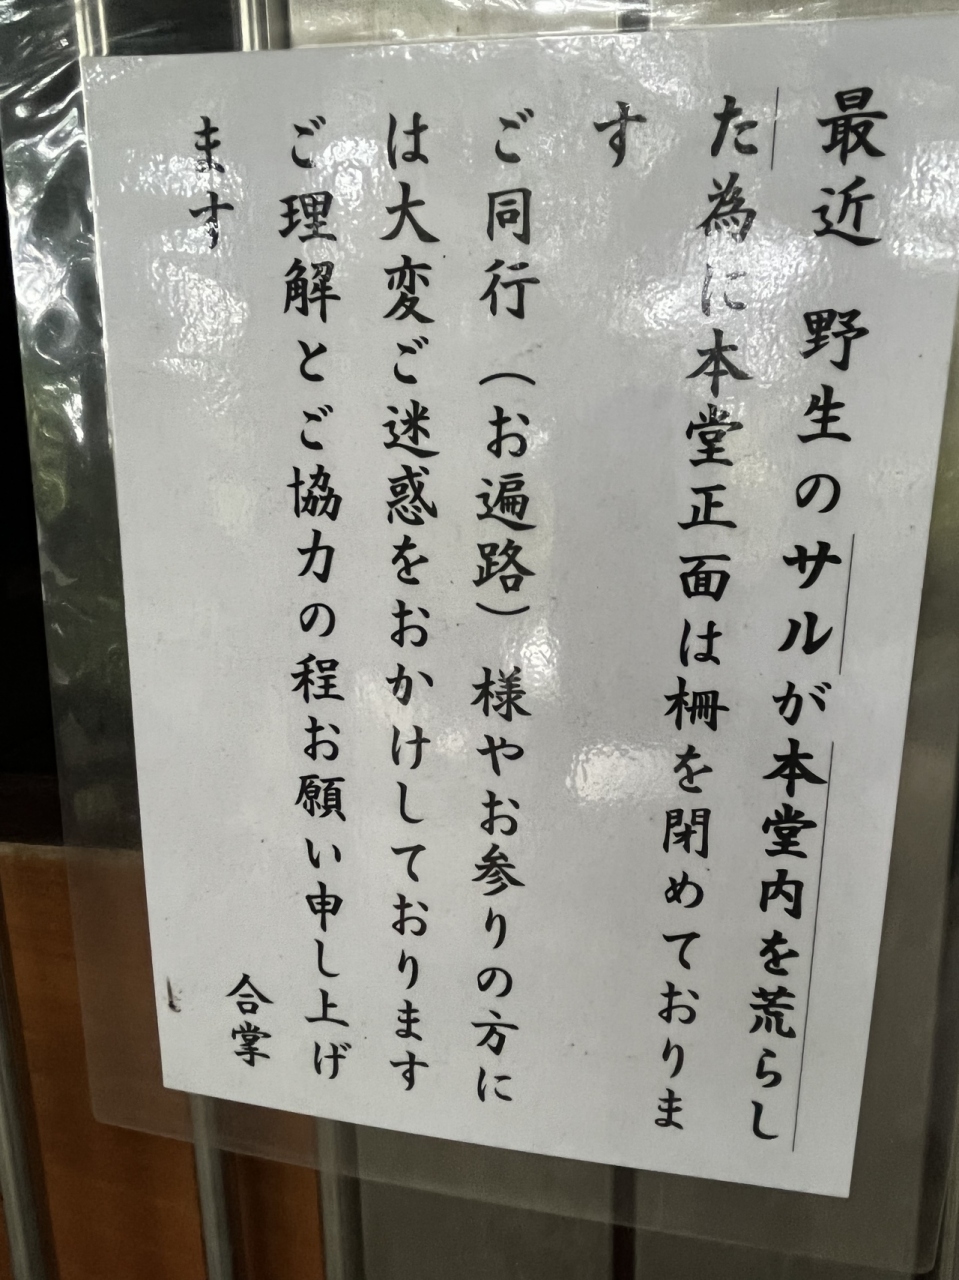 最近　野生のサルが本堂内を荒らし
た為に本堂正面は柵を閉めておりま
す
ご同行（お遍路）様やお参りの方に
は大変ご迷惑をおかけしております
ご理解とご協力の程お願い申し上げ
ます
合掌